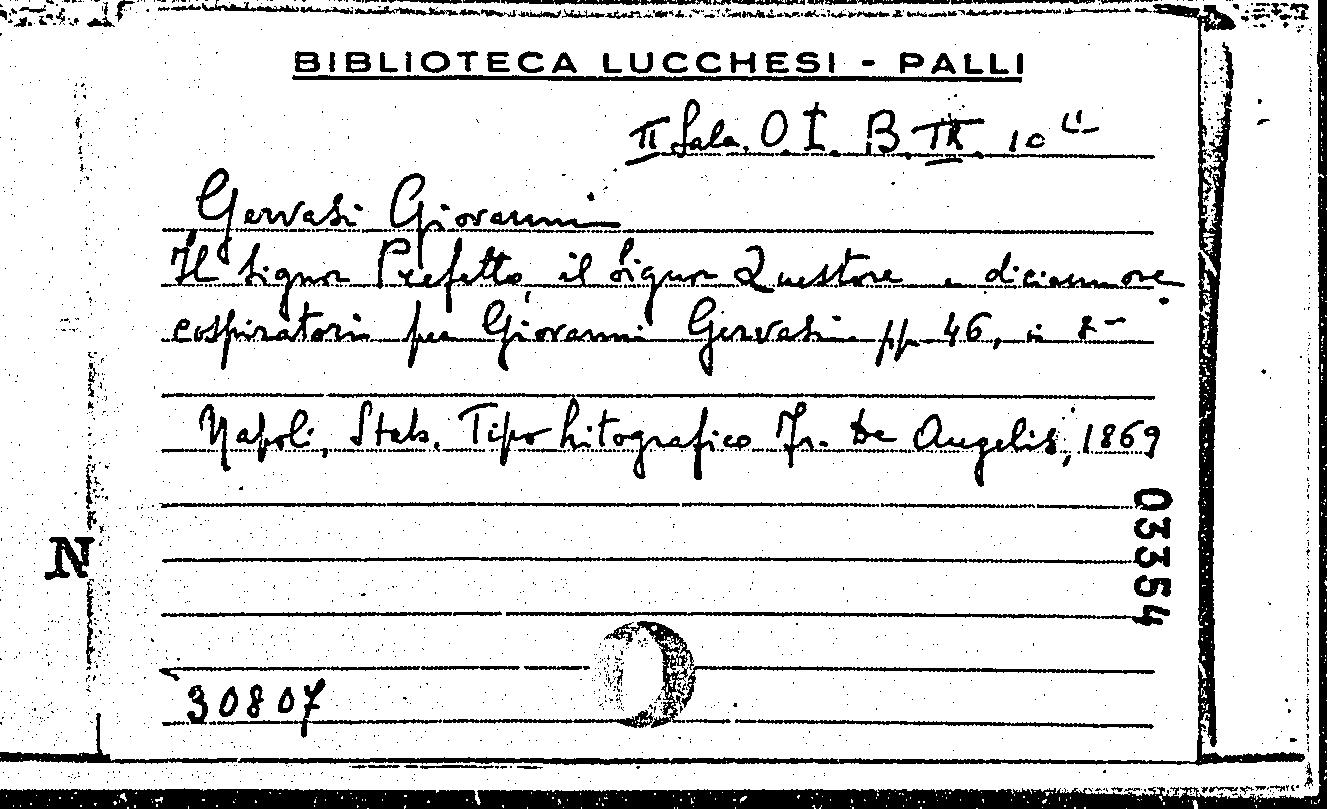 BIBLIOTECA LUCCHESI - PALLI
II Sala. O. I. B. 10
Gervasi Giovanni
Il Signor Prefetto, il Signor Questore e diciannove
cospiratori per Giovanni Gervasi pp. 46, in 8-
Napoli, Stab. Tipo litografico Fr. De Angelis, 1869
03354
N
30807